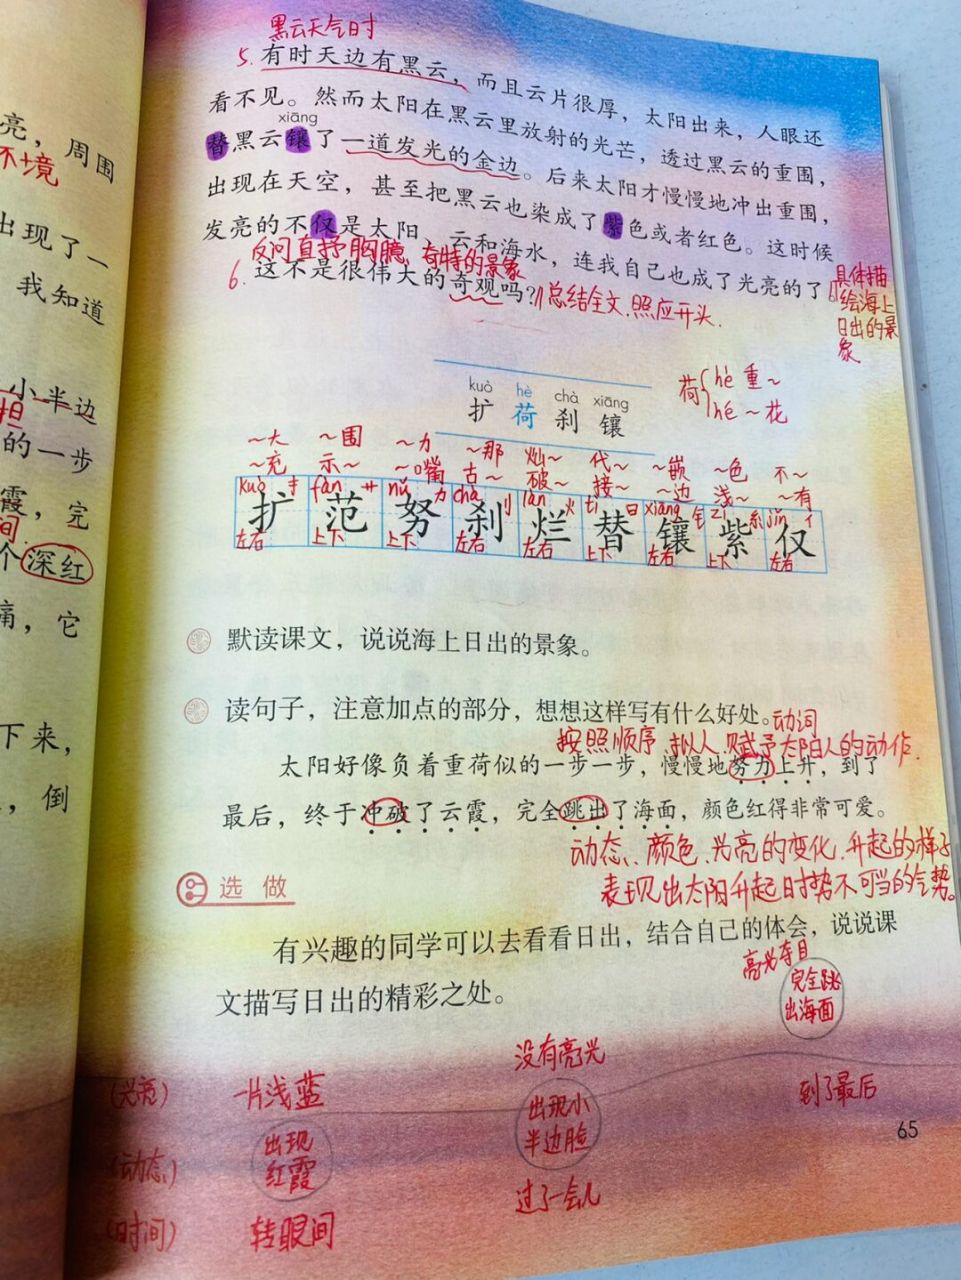 亮，周围
环境
出现了一
我知道
一小半边
的一步
霞，完
间
个深红
痛，它
下来，
，倒
黑云天气时
5.有时天边有黑云，而且云片很厚，太阳出来，人眼还
看不见。然而太阳在黑云里放射的光芒，透过黑云的重围，
xiāng
替黑云镶了一道发光的金边。后来太阳才慢慢地冲出重围，
出现在天空，甚至把黑云也染成了紫色或者红色。这时候
发亮的不仅是太阳、云和海水，连我自己也成了光亮的了。
反问直抒胸臆、奇特的景象
6.这不是很伟大的奇观吗？总结全文.照应开头.
具体描
绘海上
日出的景
象
kuò hè chà xiāng
扩 荷 刹 镶
荷 hè 重～
hé ～花
～大 ～围 ～力 ～那 灿～ 代～ ～嵌 ～色 不～
～充 示～ ～嘴 古～ 破～ 接～ ～边 浅～ ～有
kuò 扌 fàn 艹 nǔ 力 chà 刂 làn 火 tì 日 xiāng 钅 zǐ 糸 jǐn 亻
扩 范 努 刹 烂 替 镶 紫 仅
左右 上下 上下 左右 左右 上下 左右 上下 左右
默读课文，说说海上日出的景象。
读句子，注意加点的部分，想想这样写有什么好处。动词
按照顺序 拟人.赋予太阳人的动作.
太阳好像负着重荷似的一步一步，慢慢地努力上升，到了
最后，终于冲破了云霞，完全跳出了海面，颜色红得非常可爱。
动态、颜色、光亮的变化.升起的样子
表现出太阳升起时势不可当的气势。
选做
有兴趣的同学可以去看看日出，结合自己的体会，说说课
文描写日出的精彩之处。
亮光夺目
完全跳
出海面
没有亮光
(光亮) 一片浅蓝
到了最后
出现小
半边脸
65
(动态)
出现
红霞
过了一会儿
(时间) 转眼间